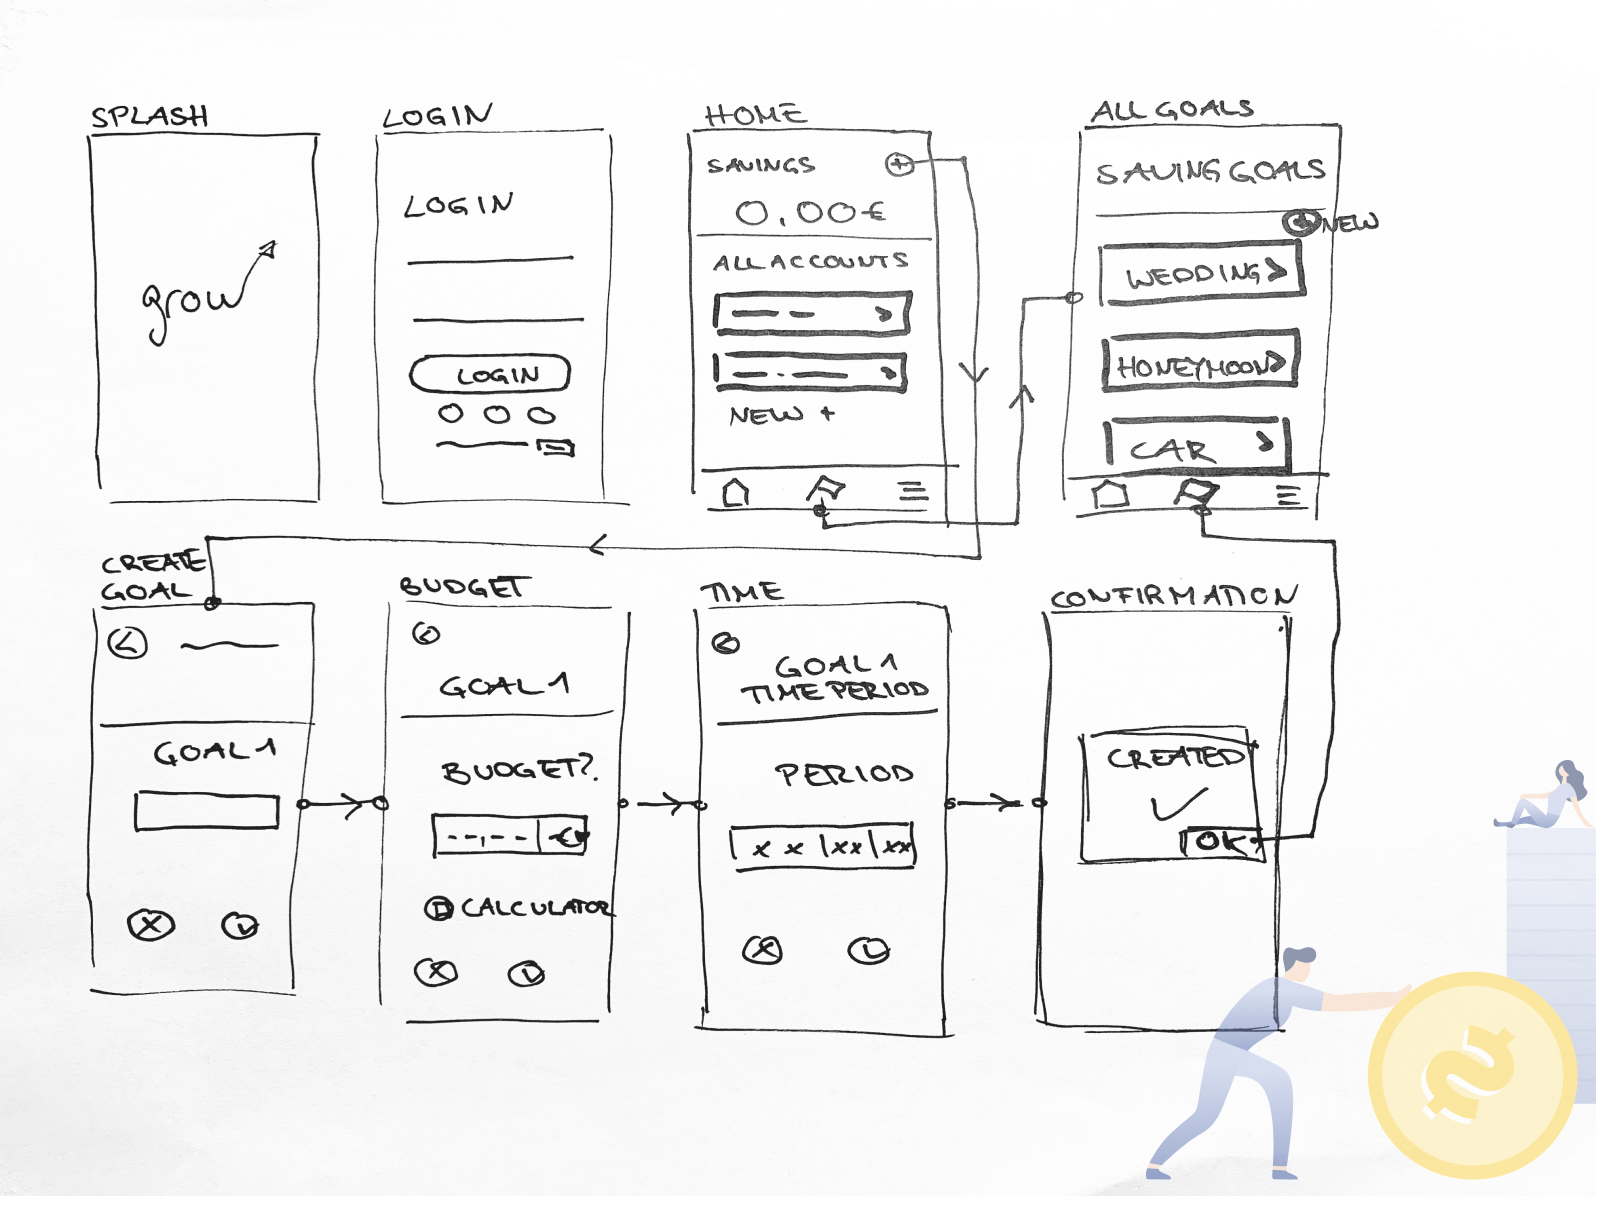 SPLASH
grow
LOGIN
LOGIN
LOGIN
HOME
SAVINGS
0,00€
ALL ACCOUNTS
NEW +
ALL GOALS
SAVING GOALS
NEW
WEDDING >
HONEYMOON >
CAR >
CREATE
GOAL
GOAL 1
BUDGET
GOAL 1
BUDGET?
--,-- €
CALCULATOR
TIME
GOAL 1
TIME PERIOD
PERIOD
x x | xx | xx
CONFIRMATION
CREATED
✓
OK